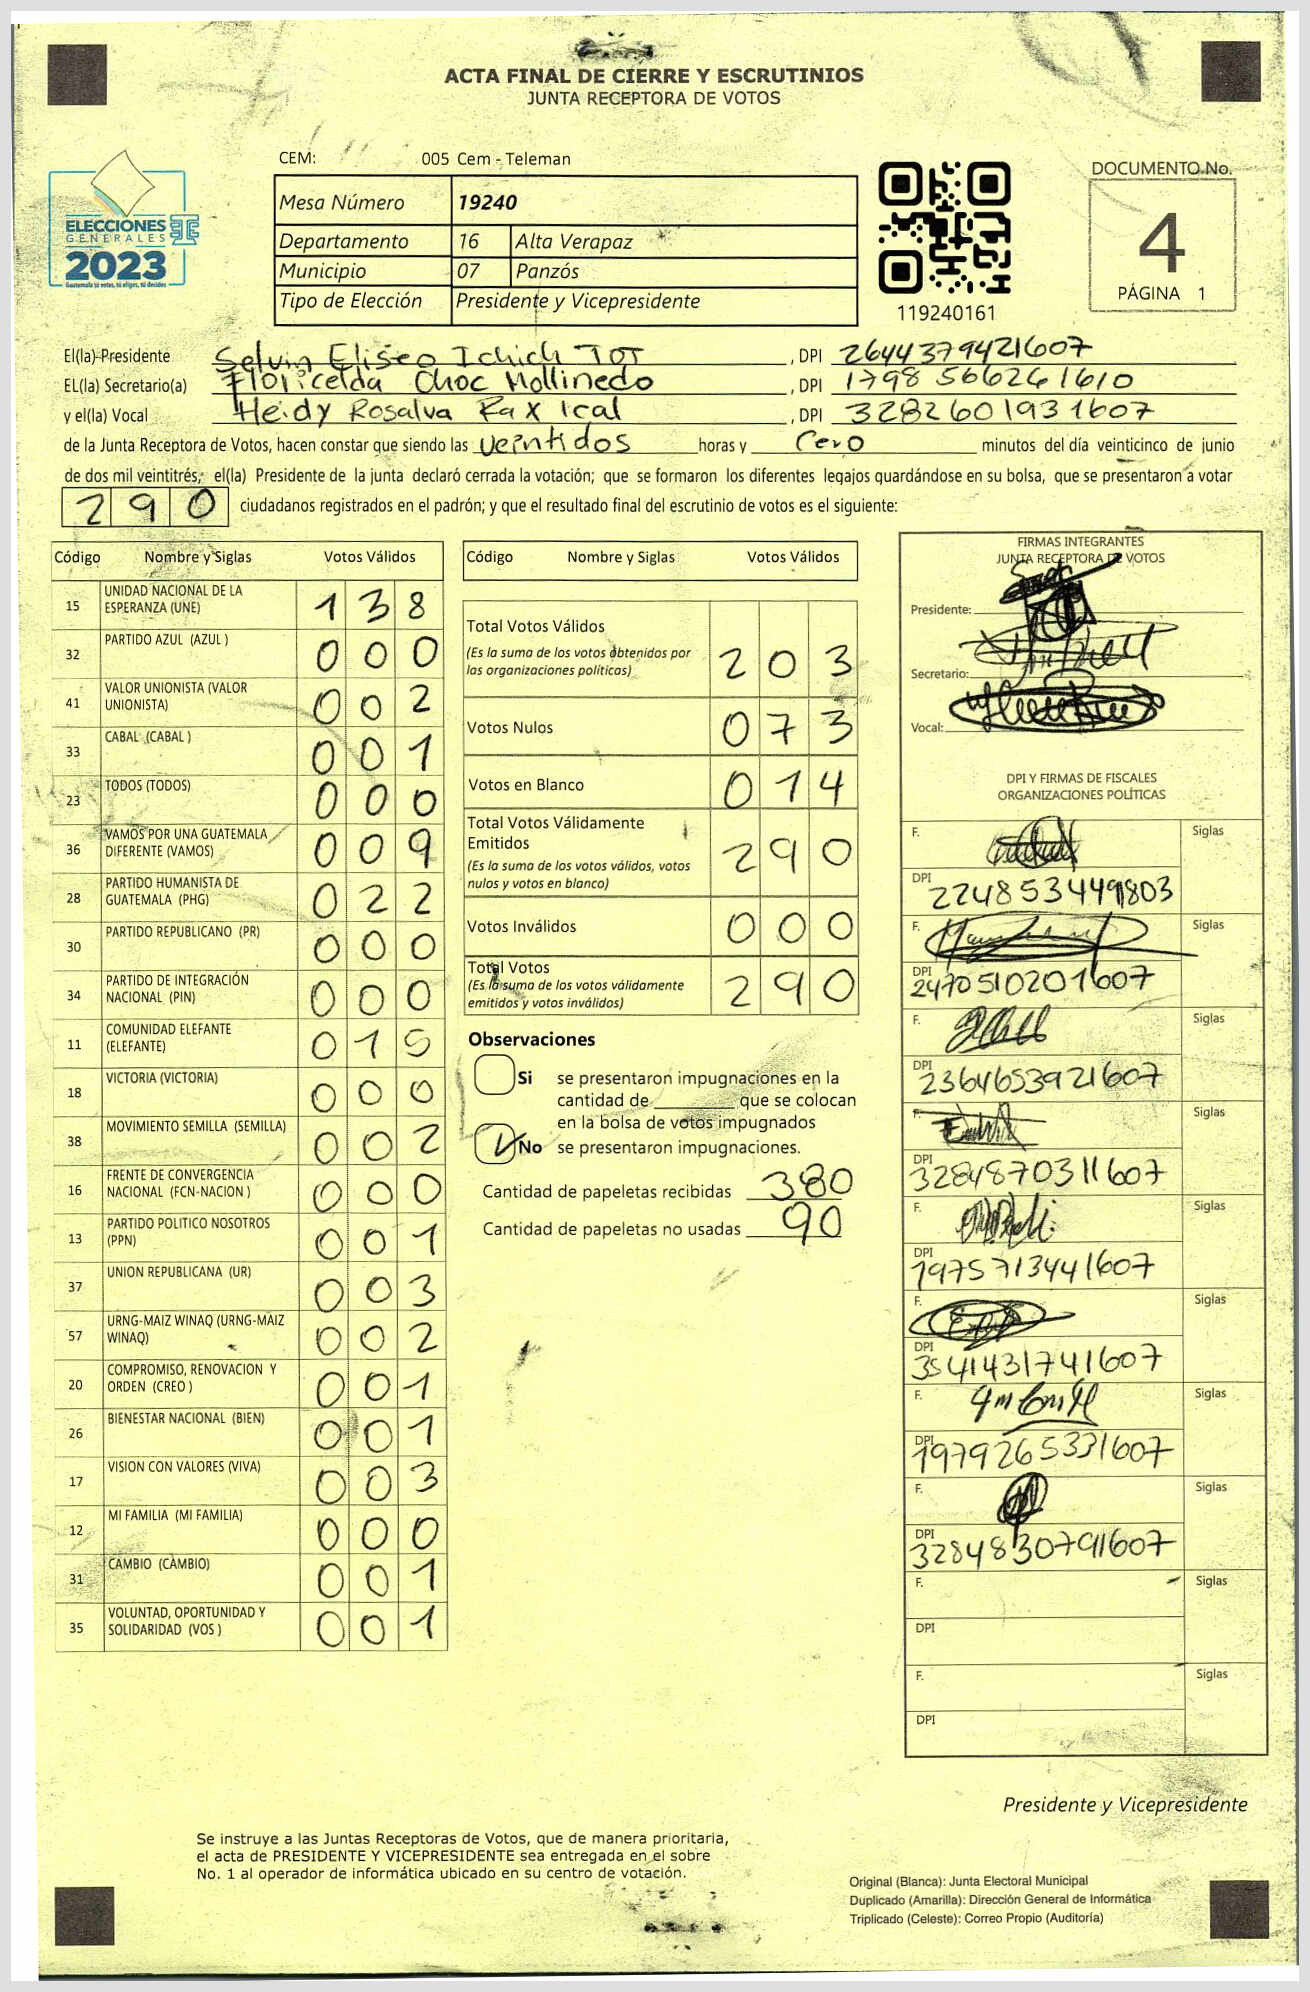 ACTA FINAL DE CIERRE Y ESCRUTINIOS
JUNTA RECEPTORA DE VOTOS
ELECCIONES
GENERALES
2023
Guatemala tú votas, tú eliges, tú decides
CEM: 005 Cem - Teleman
Mesa Número 19240
Departamento 16 Alta Verapaz
Municipio 07 Panzós
Tipo de Elección Presidente y Vicepresidente
119240161
DOCUMENTO No.
4
PÁGINA 1
El(la) Presidente Selvin Eliseo Ichich TOT , DPI 2644379421607
EL(la) Secretario(a) Floricelda Choc Mollinedo , DPI 1798566261610
y el(la) Vocal Heidy Rosalva Rax Ical , DPI 3282601931607
de la Junta Receptora de Votos, hacen constar que siendo las veintidos horas y Cero minutos del día veinticinco de junio
de dos mil veintitrés; el(la) Presidente de la junta declaró cerrada la votación; que se formaron los diferentes legajos guardándose en su bolsa, que se presentaron a votar
290 ciudadanos registrados en el padrón; y que el resultado final del escrutinio de votos es el siguiente:
Código Nombre y Siglas Votos Válidos
15 UNIDAD NACIONAL DE LA ESPERANZA (UNE) 1 3 8
32 PARTIDO AZUL (AZUL ) 0 0 0
41 VALOR UNIONISTA (VALOR UNIONISTA) 0 0 2
33 CABAL (CABAL ) 0 0 1
23 TODOS (TODOS) 0 0 0
36 VAMOS POR UNA GUATEMALA DIFERENTE (VAMOS) 0 0 9
28 PARTIDO HUMANISTA DE GUATEMALA (PHG) 0 2 2
30 PARTIDO REPUBLICANO (PR) 0 0 0
34 PARTIDO DE INTEGRACIÓN NACIONAL (PIN) 0 0 0
11 COMUNIDAD ELEFANTE (ELEFANTE) 0 1 5
18 VICTORIA (VICTORIA) 0 0 0
38 MOVIMIENTO SEMILLA (SEMILLA) 0 0 2
16 FRENTE DE CONVERGENCIA NACIONAL (FCN-NACION ) 0 0 0
13 PARTIDO POLITICO NOSOTROS (PPN) 0 0 1
37 UNION REPUBLICANA (UR) 0 0 3
57 URNG-MAIZ WINAQ (URNG-MAIZ WINAQ) 0 0 2
20 COMPROMISO, RENOVACION Y ORDEN (CREO ) 0 0 1
26 BIENESTAR NACIONAL (BIEN) 0 0 1
17 VISION CON VALORES (VIVA) 0 0 3
12 MI FAMILIA (MI FAMILIA) 0 0 0
31 CAMBIO (CAMBIO) 0 0 1
35 VOLUNTAD, OPORTUNIDAD Y SOLIDARIDAD (VOS ) 0 0 1
Código Nombre y Siglas Votos Válidos
Total Votos Válidos 2 0 3
(Es la suma de los votos obtenidos por
las organizaciones políticas)
Votos Nulos 0 7 3
Votos en Blanco 0 1 4
Total Votos Válidamente
Emitidos 2 9 0
(Es la suma de los votos válidos, votos
nulos y votos en blanco)
Votos Inválidos 0 0 0
Total Votos 2 9 0
(Es la suma de los votos válidamente
emitidos y votos inválidos)
Observaciones
Si se presentaron impugnaciones en la
cantidad de ________ que se colocan
en la bolsa de votos impugnados
No se presentaron impugnaciones.
Cantidad de papeletas recibidas 380
Cantidad de papeletas no usadas 90
FIRMAS INTEGRANTES
JUNTA RECEPTORA DE VOTOS
Presidente:
Secretario:
Vocal:
DPI Y FIRMAS DE FISCALES
ORGANIZACIONES POLÍTICAS
F. Siglas
DPI 2248534491803
F. Siglas
DPI 2470510201607
F. Siglas
DPI 2364653921607
F. Siglas
DPI 3284870311607
F. Siglas
DPI 1975713441607
F. Siglas
DPI 3541431741607
F. Siglas
DPI 1979265331607
F. Siglas
DPI 3284830791607
F. Siglas
DPI
F. Siglas
DPI
Presidente y Vicepresidente
Se instruye a las Juntas Receptoras de Votos, que de manera prioritaria,
el acta de PRESIDENTE Y VICEPRESIDENTE sea entregada en el sobre
No. 1 al operador de informática ubicado en su centro de votación.
Original (Blanca): Junta Electoral Municipal
Duplicado (Amarilla): Dirección General de Informática
Triplicado (Celeste): Correo Propio (Auditoría)